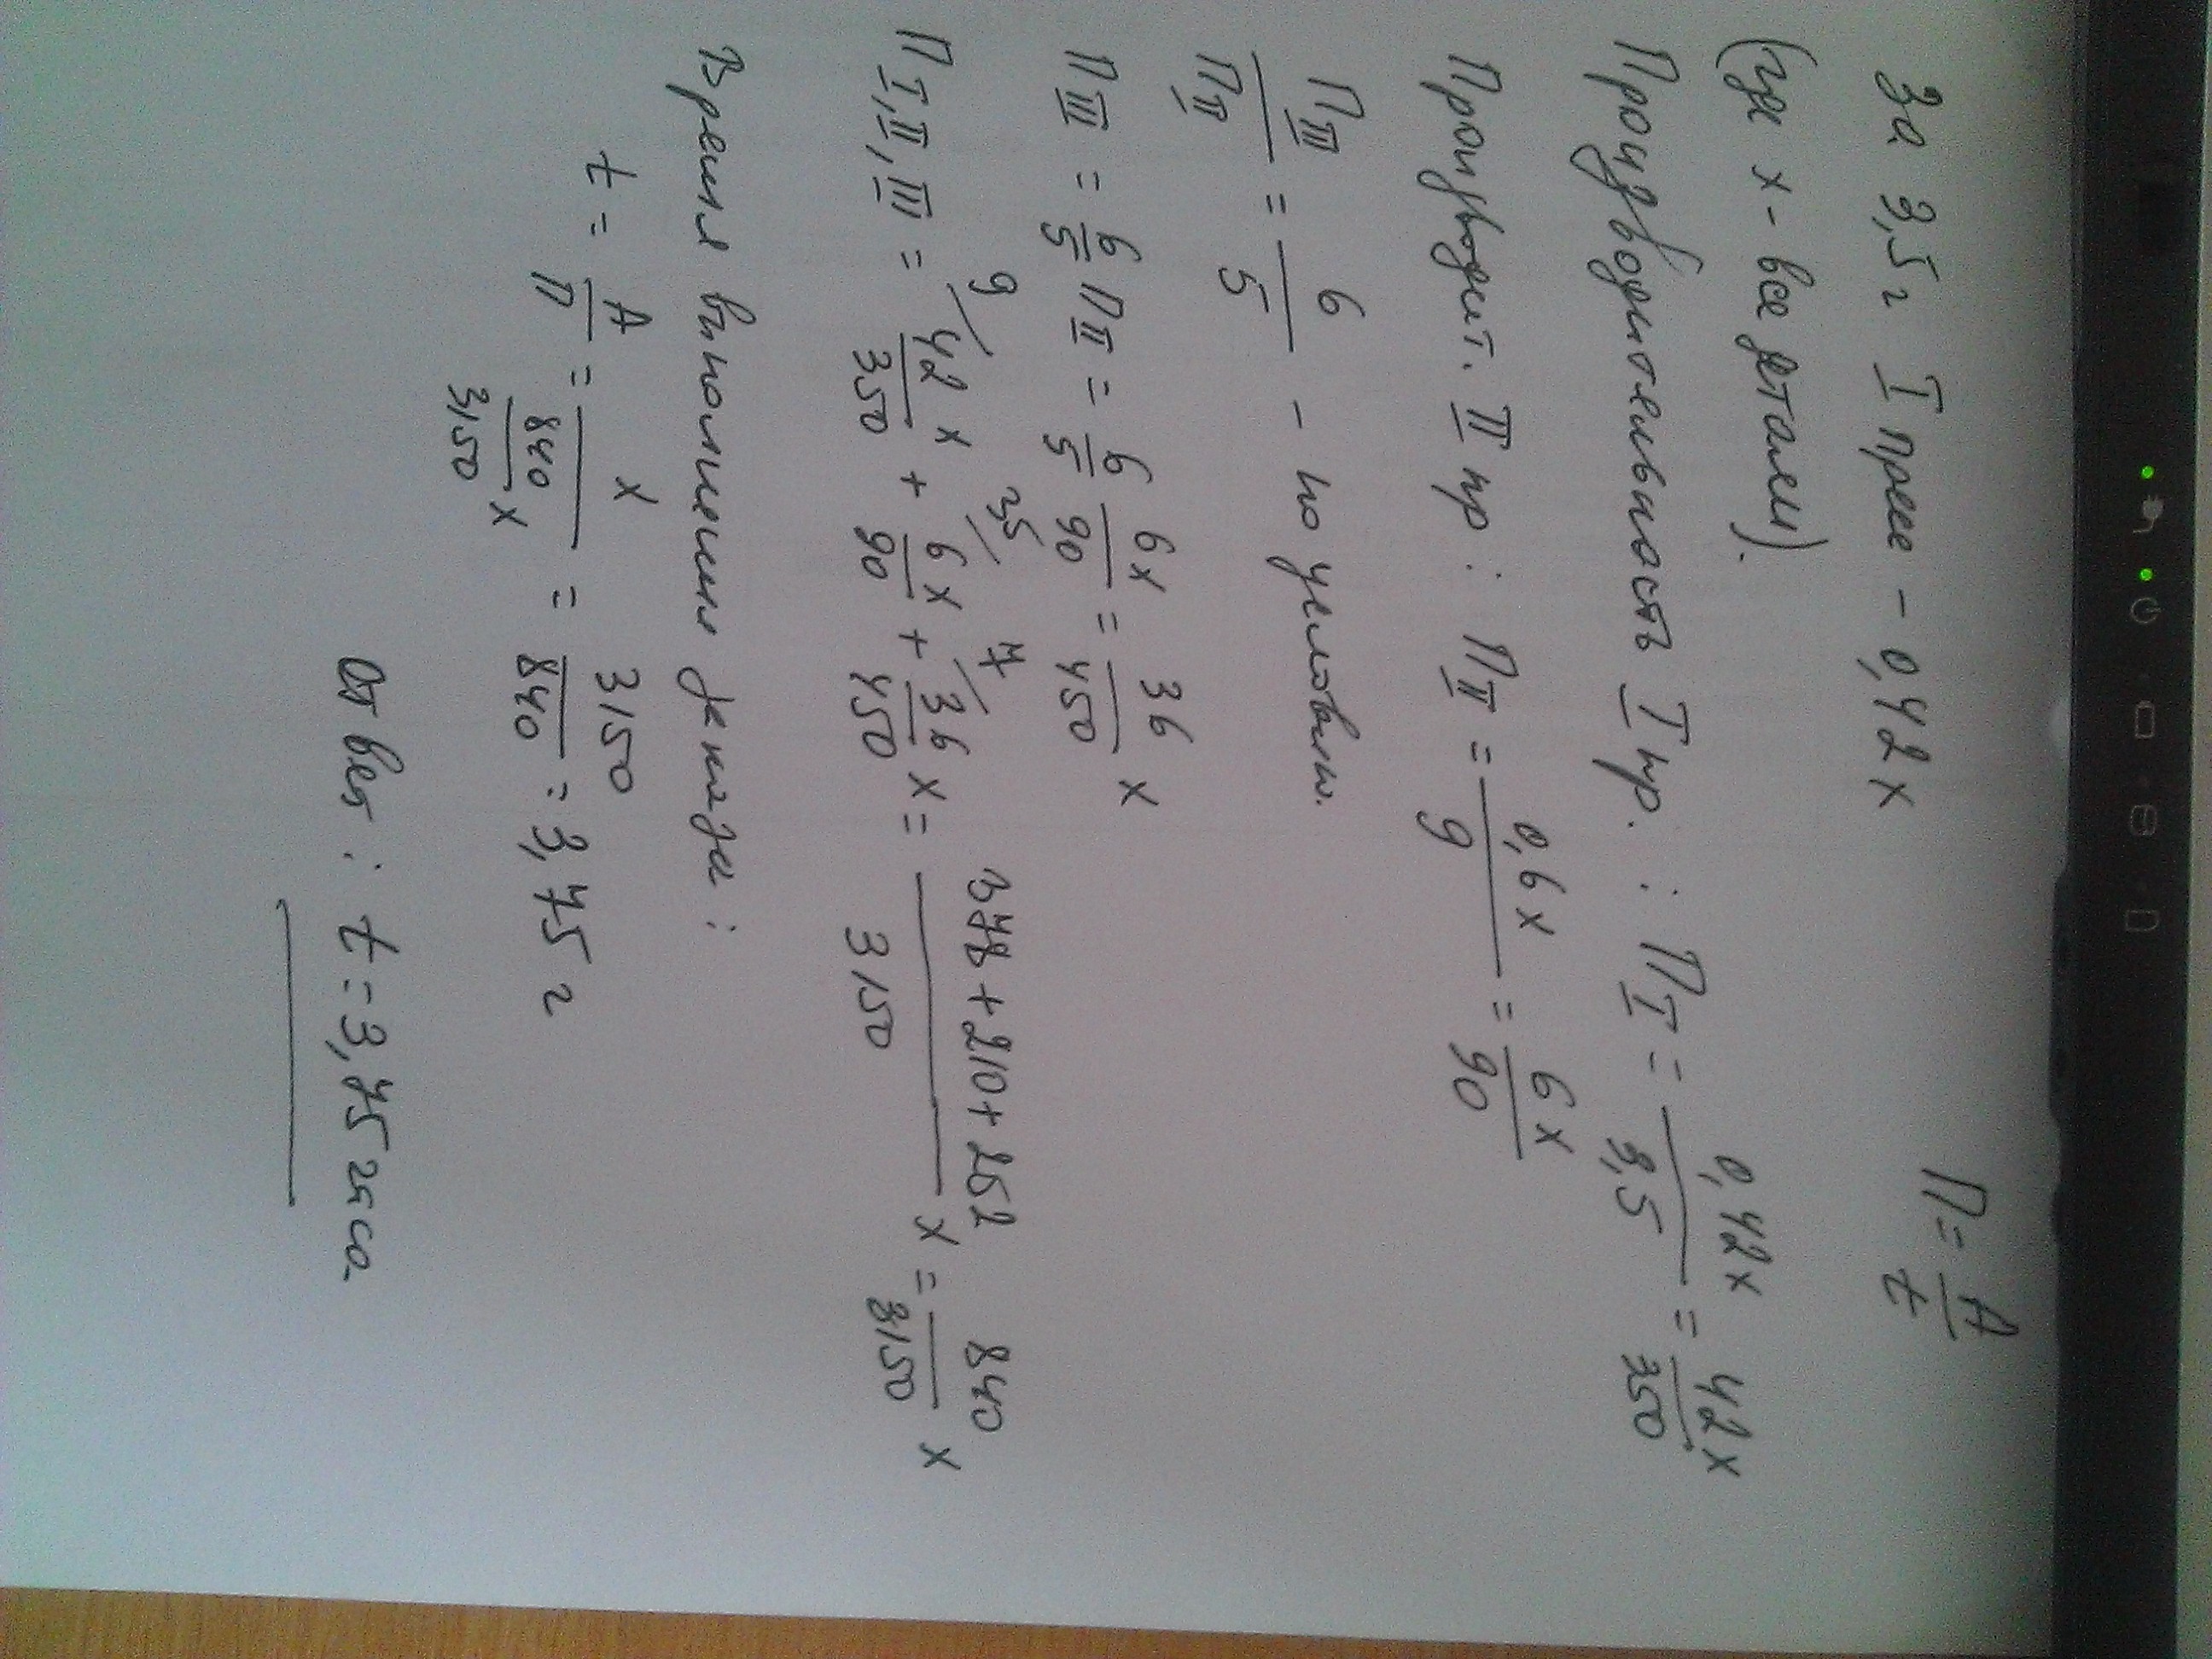 За 3,5 г I пресс - 0,42x П = A/t
(где x - все детали).
Производительность I пр. : П_I = 0,42x/3,5 = 42x/350
Производит. II пр : П_II = 0,6x/9 = 6x/90
П_III/П_II = 6/5 - по условию.
П_III = 6/5 П_II = 6/5 6x/90 = 36/450 x
П_I,II,III = 9/ 42/350 x + 35/ 6/90 x + 7/ 36/450 x = 378+210+252/3150 x = 840/3150 x
Время выполнения :
t = A/П = x/(840/3150 x) = 3150/840 = 3,75 г
Ответ : t = 3,75 часа.